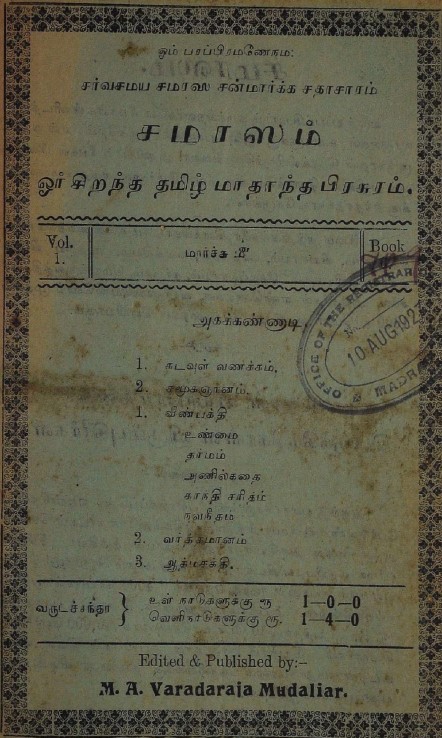 ஓம் பரப்பிரமணேநம:
சர்வசமய சமரஸ சன்மார்க்க சதாசாரம்
சமரஸம்
ஓர் சிறந்த தமிழ் மாதாந்த பிரசுரம்.
Vol. 1.
மார்ச்சு மீ
Book
OFFICE OF THE REGISTRAR
10 AUG 192
MADRA
அகக்கண்ணாடி.
1. கடவுள் வணக்கம்.
2. சமூகஞானம்.
1. விண்பக்தி
உண்மை
தர்மம்
அணில்கதை
காந்தி சரிதம்
நவநீதம்
2. வர்த்தமானம்
3. ஆத்மசக்தி.
வருடச்சந்தா
உள் நாடுகளுக்கு ரூ 1—0—0
வெளிநாடுகளுக்கு ரூ. 1—4—0
Edited & Published by:-
M. A. Varadaraja Mudaliar.